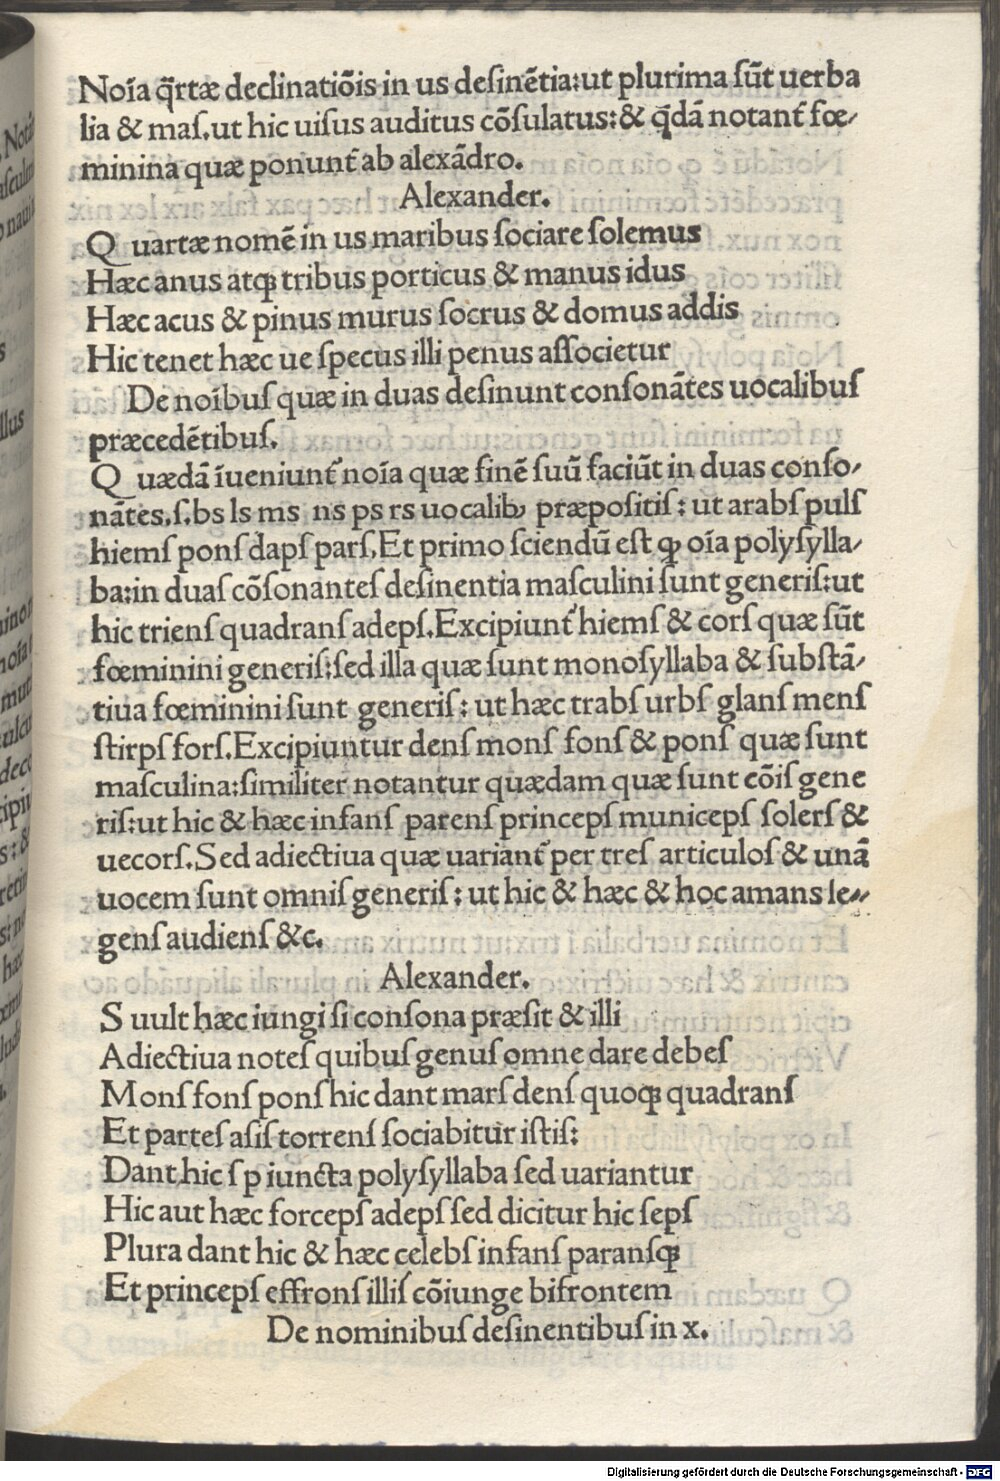 Noīa q̄rtæ declinatiōis in us deſinētia:ut plurima ſūt uerba
lia & maſ.ut hic uiſus auditus cōſulatus:& q̄dā notant᷑ fœ/
minina quæ ponunt᷑ ab alexādro.
Alexander.
Q uartæ nomē in us maribus ſociare ſolemus
Hæc anus atqꝫ tribus porticus & manus idus
Hæc acus & pinus murus ſocrus & domus addis
Hic tenet hæc ue ſpecus illi penus aſſocietur
De noībuſ quæ in duas deſinunt conſonātes uocalibuſ
præcedētibuſ.
Q uædā īueniunt᷑ noīa quæ finē ſuū faciūt in duas conſo/
nātes.ſ.bs ls ms ns ps rs uocalibꝫ præpoſitiſ: ut arabſ pulſ
hiemſ ponſ dapſ parſ.Et primo ſciendū eſt ꝙ oīa polyſylla/
ba:in duaſ cōſonanteſ deſinentia maſculini ſunt generiſ:ut
hic trienſ quadranſ adepſ.Excipiunt᷑ hiemſ & corſ quæ ſūt
fœminini generiſ:ſed illa quæ ſunt monoſyllaba & ſubſtā/
tiua fœminini ſunt generiſ: ut hæc trabſ urbſ glanſ menſ
ſtirpſ forſ.Excipiuntur denſ monſ fonſ & ponſ quæ ſunt
maſculina:ſimiliter notantur quædam quæ ſunt cōiſ gene
riſ:ut hic & hæc infanſ parenſ princepſ municepſ ſolerſ &
uecorſ.Sed adiectiua quæ uariant᷑ per treſ articuloſ & unā
uocem ſunt omniſ generiſ: ut hic & hæc & hoc amans le/
genſ audienſ &c.
Alexander.
S uult hæc iungi ſi conſona præſit & illi
Adiectiua noteſ quibuſ genuſ omne dare debeſ
Monſ fonſ ponſ hic dant marſ denſ quoqꝫ quadranſ
Et parteſ aſiſ torrenſ ſociabitur iſtiſ:
Dant hic ſ p iuncta polyſyllaba ſed uariantur
Hic aut hæc forcepſ adepſ ſed dicitur hic ſepſ
Plura dant hic & hæc celebſ infanſ paranſqꝫ
Et princepſ effronſ illiſ cōiunge bifrontem
De nominibuſ deſinentibuſ in x.
Digitalisierung gefördert durch die Deutsche Forschungsgemeinschaft - DFG